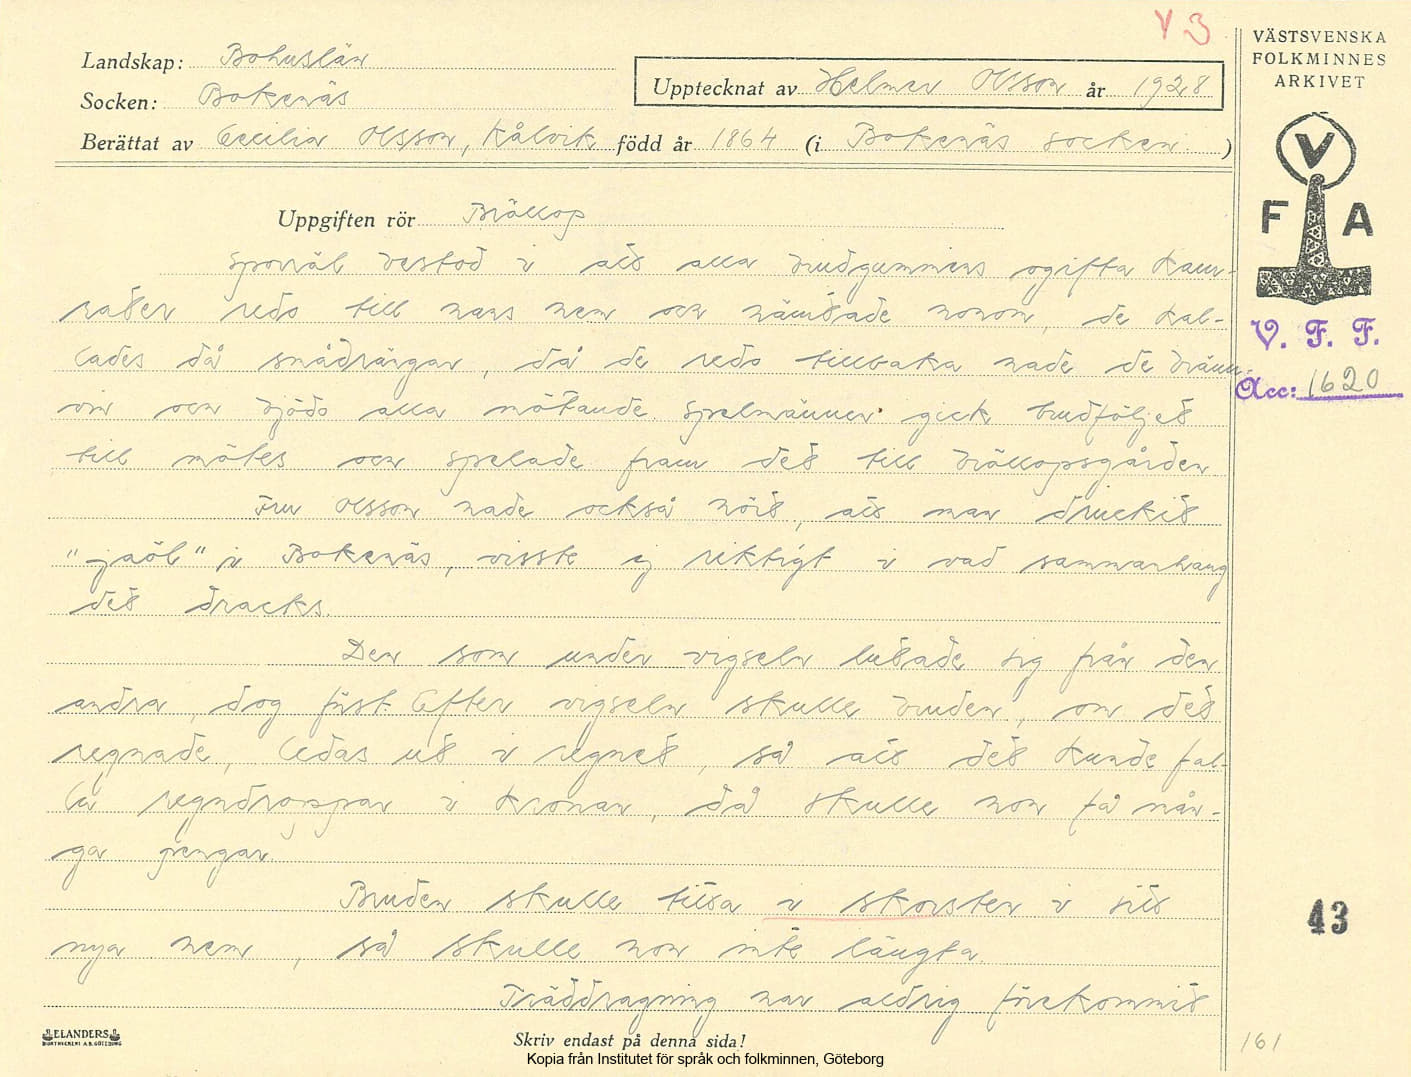 V 3
VÄSTSVENSKA
FOLKMINNES
ARKIVET
Landskap: Bohuslän
Socken: Bokenäs
Upptecknat av Helmer Olsson år 1928
Berättat av Cecilia Olsson, Kålvik född år 1864 (i Bokenäs socken )
V
F A
V. F. F.
Acc: 1620
Uppgiften rör Bröllop
bestod i att alla brudgummens ogifta kam-
rater redo till hans hem och hämtade honom, de kal-
lades då smådrängar, då de redo tillbaka hade de bränn-
vin och bjödo alla mötande. Spelmännen gick brudföljet
till mötes och spelade fram det till bröllopsgården
Fru Olsson hade också hört, att man druckit
"jaöl" i Bokenäs, visste ej riktigt i vad sammanhang
det dracks.
Den som under vigseln lutade sig från den
andra, dog först. Efter vigseln skulle bruden, om det
regnade, ledas ut i regnet, så att det kunde fal-
la regndroppar i kronan, då skulle hon få mån-
ga pengar.
Bruden skulle titta i skorsten i sitt
nya hem, så skulle hon inte längta.
Träddragning har aldrig förekommit
43
ELANDERS
BOKTRYCKERI A.B. GÖTEBORG
Skriv endast på denna sida!
161
Kopia från Institutet för språk och folkminnen, Göteborg